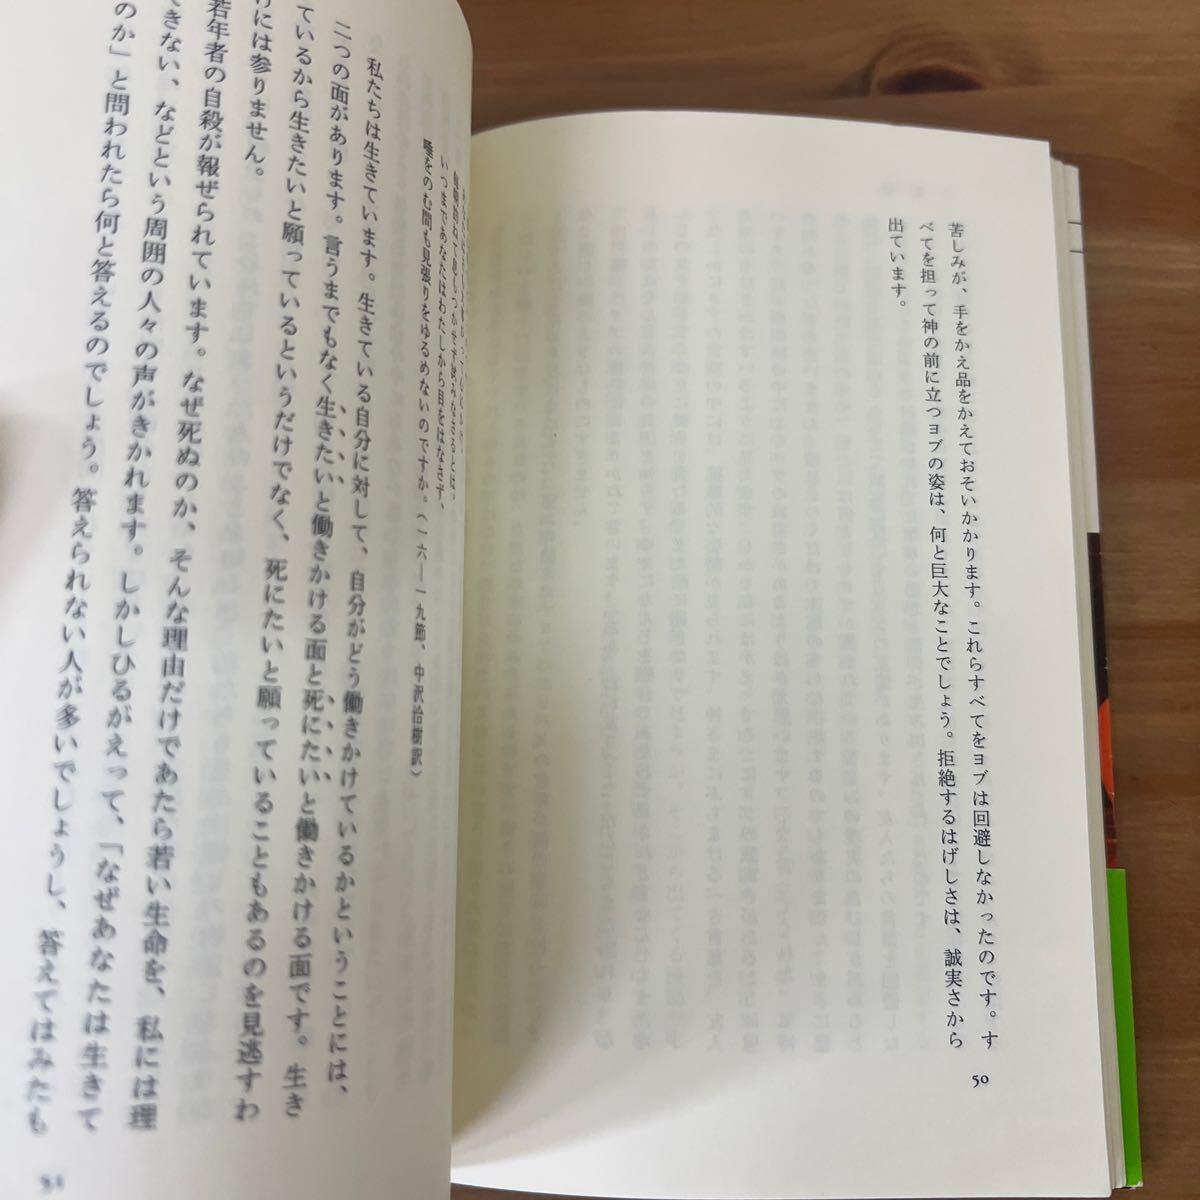 苦しみが、手をかえ品をかえておそいかかります。これらすべてをヨブは回避しなかったのです。す
べてを担って神の前に立つヨブの姿は、何と巨大なことでしょう。拒絶するはげしさは、誠実さから
出ています。
50
いつまであなたはわたしから目をはなさず、
唾をのむ間も見張りをゆるめないのですか。(一六―一九節、中沢洽樹訳)
私たちは生きています。生きている自分に対して、自分がどう働きかけているかということには、
二つの面があります。言うまでもなく生きたいと働きかける面と死にたいと働きかける面です。生き
ているから生きたいと願っているというだけでなく、死にたいと願っていることもあるのを見逃すわ
けには参りません。
若年者の自殺が報ぜられています。なぜ死ぬのか、そんな理由だけであたら若い生命を、私には理
できない、などという周囲の人々の声がきかれます。しかしひるがえって、「なぜあなたは生きて
のか」と問われたら何と答えるのでしょう。答えられない人が多いでしょうし、答えてはみたも
51